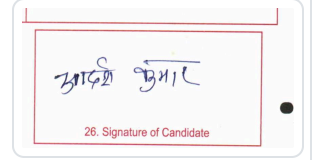 आदर्श कुमार
26. Signature of Candidate